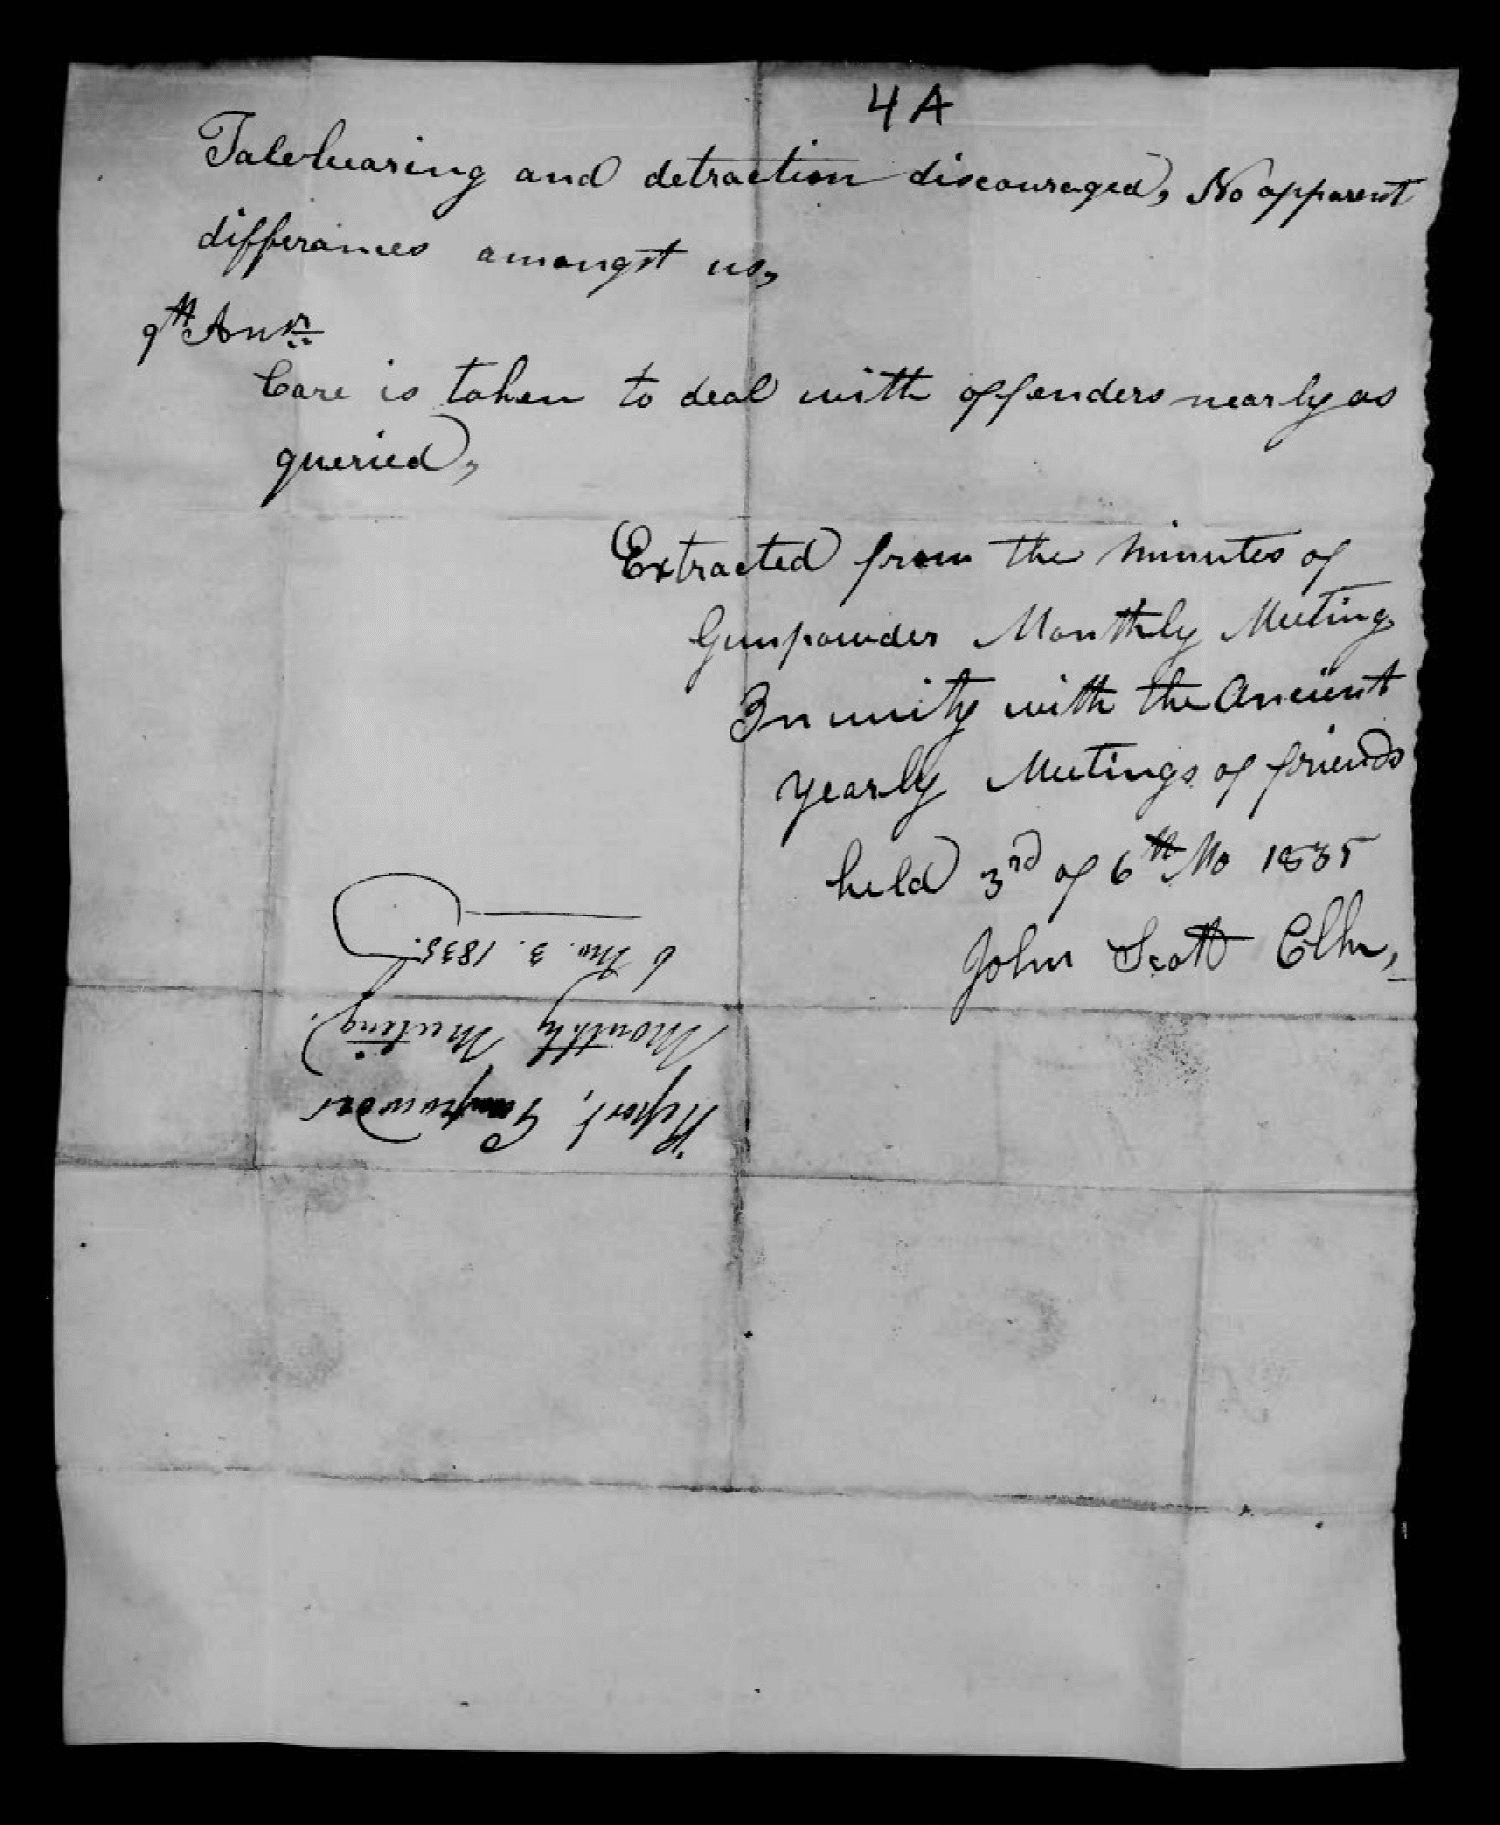 4 A
Talebearing and detraction discouraged, No apparent
differances amongst us,
9th Answ
Care is taken to deal with offenders nearly as
queried,
Extracted from the minutes of
Gunpowder Monthly Meeting
In unity with the Ancient
yearly Meetings of friends
held 3rd of 6th Mo 1835
John Scott Clk,
Report, Gunpowder
Monthly Meeting.
6 mo. 3. 1835.